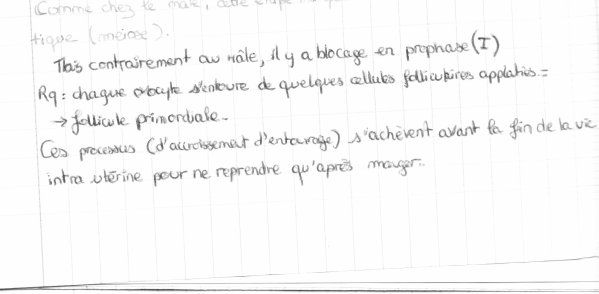 Comme chez le mâle, cette étape
tique (meiose).
Mais contrairement au mâle, il y a blocage en prophase (I)
Rq : chaque ovocyte s'entoure de quelques cellules folliculaires applaties =
→ follicule primordiale.
Ces processus (d'accroissement d'entourage) s'achèvent avant la fin de la vie
intra utérine pour ne reprendre qu'après manger..